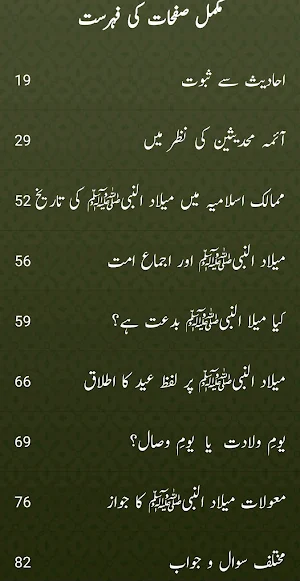 مکمل صفحات کی فہرست
احادیث سے ثبوت 19
آئمہ محدیثین کی نظر میں 29
ممالک اسلامیہ میں میلاد النبیﷺ کی تاریخ 52
میلاد النبیﷺ اور اجماع امت 56
کیا میلا النبیﷺ بدعت ہے؟ 59
میلاد النبیﷺ پر لفظ عید کا اطلاق 66
یومِ ولادت یا یومِ وصال؟ 69
معولات میلاد النبیﷺ کا جواز 76
مختلف سوال و جواب 82